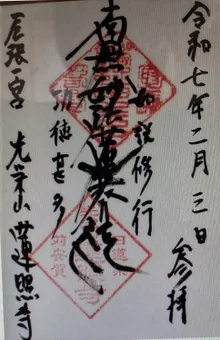 令和七年二月三日 参拝
如説修行
南無妙法蓮華経
功徳甚多
尾張一宮 光栄山 蓮照寺